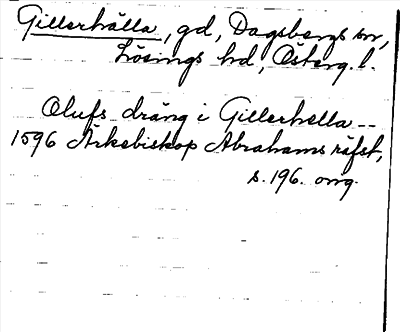 Gillerhälla, gd, Dagsbergs sn,
Lösings hd, Österg. l.
Olufs dräng i Gillerhella --
1596 Ärkebiskop Abrahams räfst,
s. 196. orig.